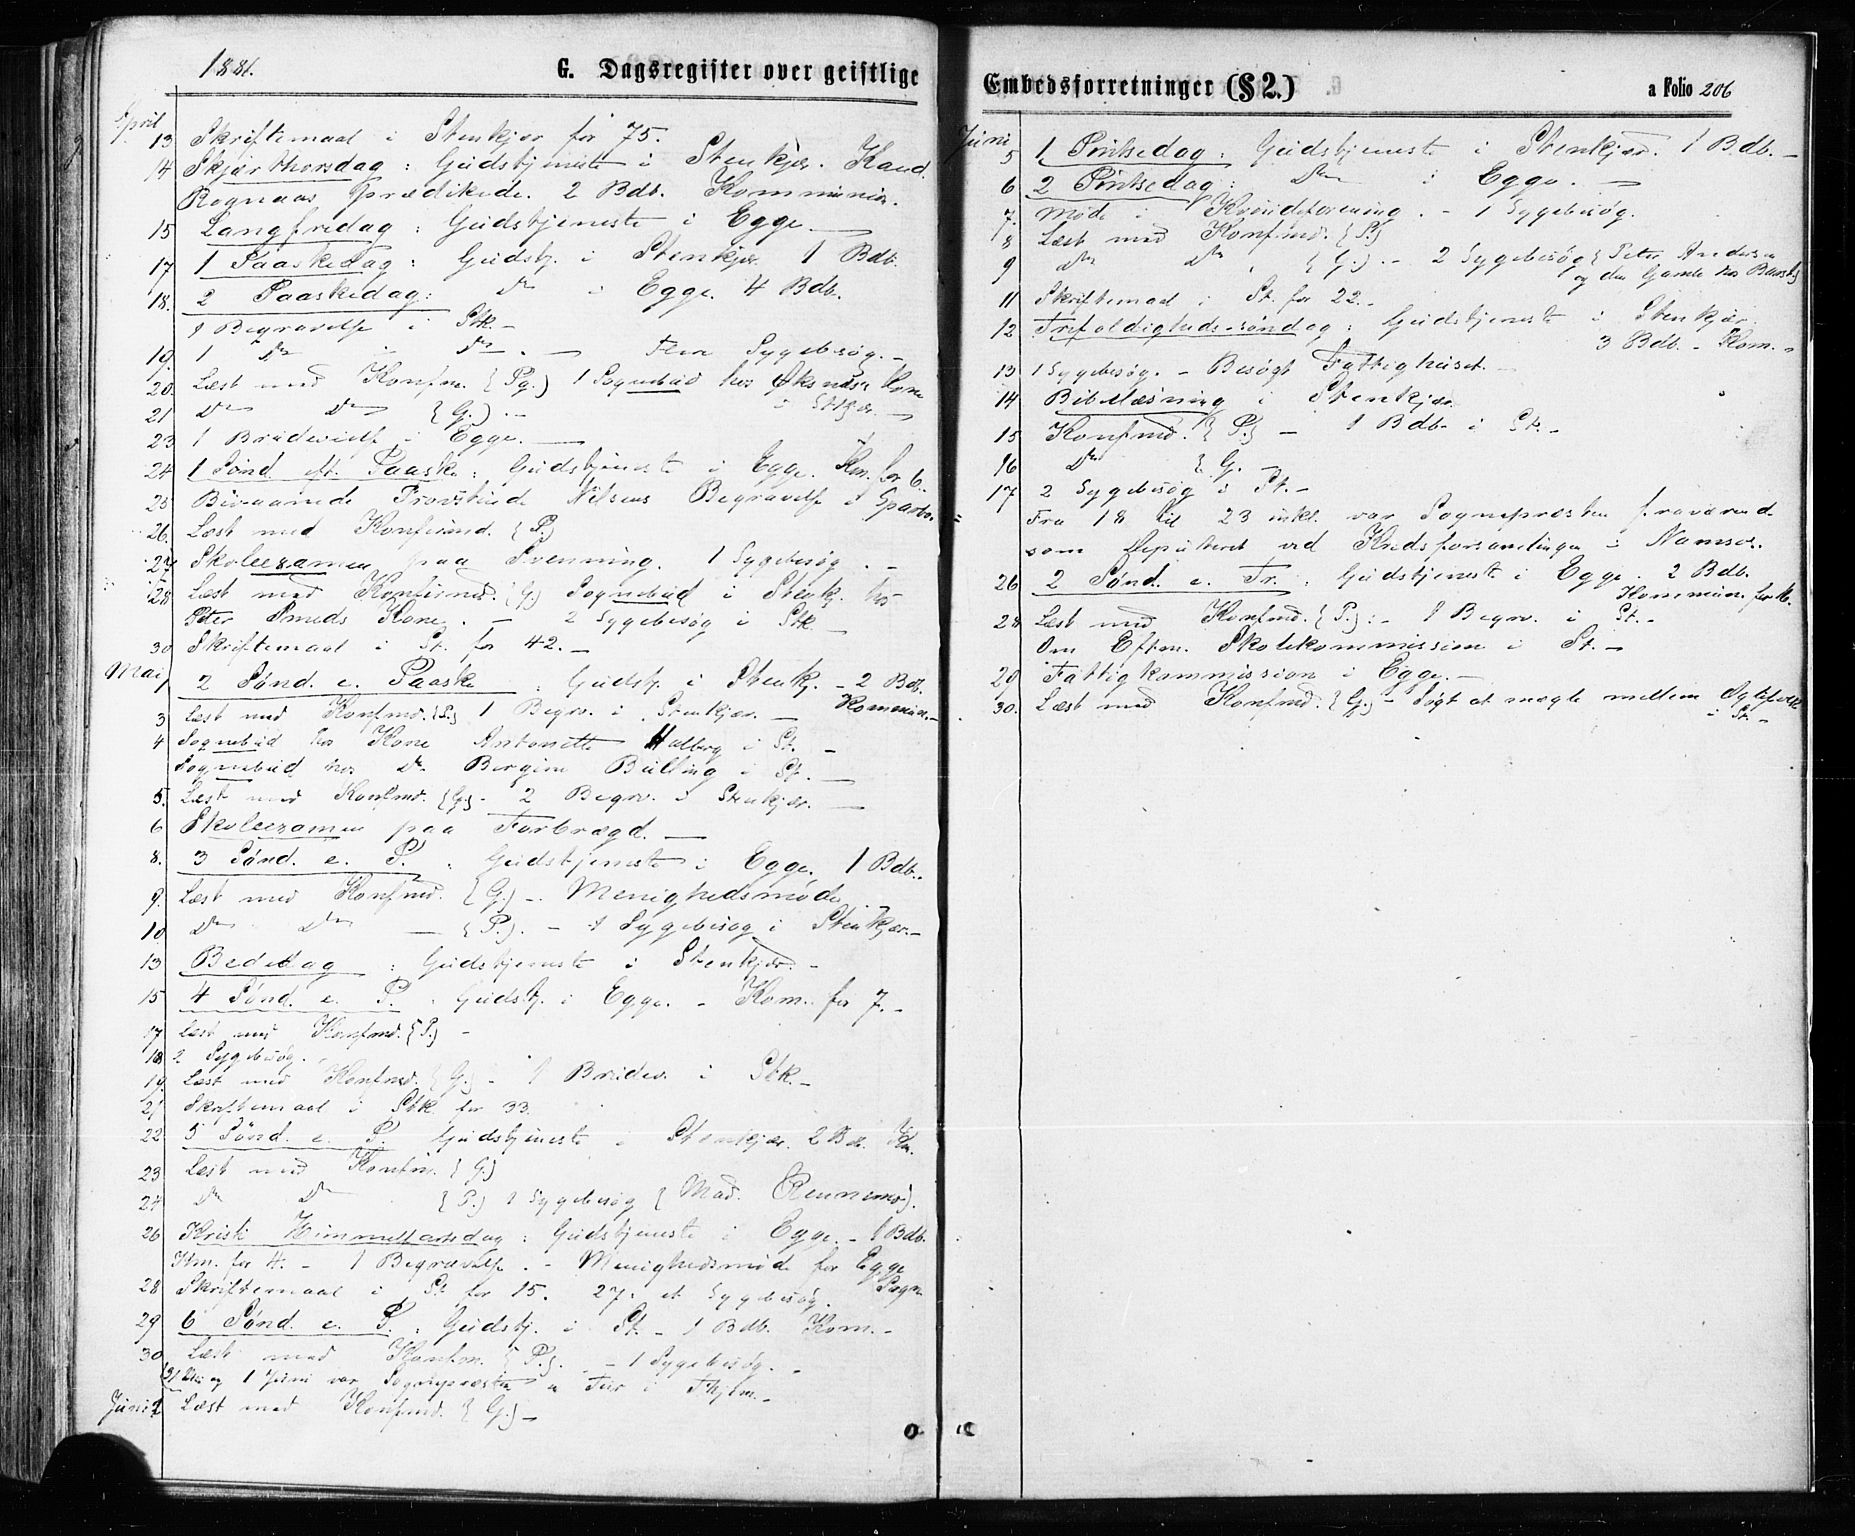 1881.
G. Dagsregister over geistlige
April
13 Skriftemaal i Stenkjær for 75.
14 Skjærthorsdag: Gudstjeneste i Stenkjær. Kand.
Rognaas prædikede. 2 Bdb. Kommunion.
15 Langfredag: Gudstjeneste i Egge. —
17 1 Paaskedag: Gudstj. i Stenkjær 1 Bdb.
18. 2 Paaskedag: Do i Egge. 4 Bdb.
1 Begravelse i Stk. —
19. 1 Do i Do. — Flere Sygebesøg. —
20. Læst med Konfm. (Pg.) 1 Sognebud hos Kone
i Stkjær. —
21 Do Do (G.). —
23 1 Brudevielse i Egge. —
24 1 Sønd. eft. Paaske: Gudstjeneste i Egge. Km. for 6.
25 Bivaanede Provstinde Nilsens Begravelse i Sparbo.
26. Læst med Konfirmd. (P.)
27 Skoleexamen paa Svenning. 1 Sygebesøg. —
28 Læst med Konfirmd. (G.) Sognebud i Stenkj. hos
Peter Smeds Kone. — 2 Sygebesøg i Stk —
30 Skriftemaal i St. for 42. —
Mai 1 2 Sønd. e. Paaske: Gudstj. i Stenkj. — 2 Bdb.
Kommunion. —
3 Læst med Konfmd. (P.) 1 Begrv. i Stenkjær. —
4 Sognebud hos Kone Antonette Halberg i St. —
Sognebud hos Do Bergine Bulling i St. —
5. Læst med Konfmd. (G.) — 2 Begrv. i Stenkjær. —
6 Skoleexamen paa Forbregd. —
8. 3 Sønd. e. P.: Gudstjeneste i Egge. 1 Bdb.
9. Læst med Konfmd. (G.) —. Menighedsmøde. —
10 Do Do — (P.). — 1 Sygebesøg i Stenkjær. —
13 Bededag: Gudstjeneste i Stenkjær. —
15 4 Sønd. e. P. Gudstj. i Egge. — Kom. for 7. —
17 Læst med Konfmd. (P.) —
18 2 Sygebesøg.
19. Læst med Konfmd. (G.) — 1 Brudev. i Stk. —
21 Skriftemaal i Stk for 33.
22. 5 Sønd. e. P. Gudstjeneste i Stenkjær. 2 Bdb. Km.
23 Læst med Konfm. (G.)
24 Do Do (P.) 1 Sygebesøg (Mad. Rennemo).
26 Kristi Himmelfartsdag: Gudstjeneste i Egge. — 1 Bdb.
Km. for 4. — 1 Begravelse. — Menighedsmøde for Egge
Sogn
28 Skriftemaal i St for 15. 27: et Sygebesøg.
29 6 Sønd. e. P.: Gudstj. i St. — 1 Bdb. Kom. —
30 Læst med Konfm. (P.). — 1 Sygebesøg. —
(31 Mai og 1 Juni var Sognepræsten Tur i Thjem. —
Juni 2 Læst med Konfmd. (G.) —
Embedsforretninger (§ 2.)
a Folio 206
Juni
5 1 Pintsedag: Gudstjeneste i Stenkjær. 1 Bdb. —
6 2 Pintsedag: Do i Egge. —
7. Møde i Kvindeforening. — 1 Sygebesøg.
8 Læst med Konfmd. (P.)
9 Do Do (G.). — 2 Sygebesøg (Peter Anders
og den Gamle hos
11 Skriftemaal i St. for 22. —
12 Trefoldigheds-søndag: Gudstjeneste i Stenkjær.
3 Bdb. — Kom. —
13 1 Sygebesøg. — Besøgt Fattighuset. —
14 Bibellæsning i Stenkjær.
15 Konfmd. (P.) — 1 Bdb. i St. —
16 Do (G. —
17 2 Sygebesøg i St. —
Fra 18 til 23 inkl. var Sognepræsten fraværend.
som Deputeret ved Kredsforsamlingen i Namsos.
26 2 Sønd. e. Tr.: Gudstjeneste i Egge. 2 Bdb.
Kommun. for
28 Læst med Konfmd. (P.): — 1 Begrv. i St. —
Om Efterm. Skolekommission i St. —
29 Fattigkommission i Egge. —
30. Læst med Konfmd. (G.) — Søgt at mægle mellem Ægtefolk
i St. —